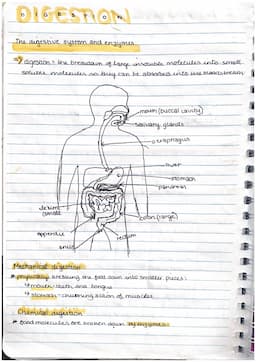 DIGESTION
The digestive system and enzymes
digestion = the breakdown of large insoluble molecules into small
soluble molecules so they can be absorbed into the bloodstream
mouth (buccal cavity)
salivary glands
oesophagus
liver
stomach
pancreas
ileum
(small)
colon (large)
appendix
anus
rectum
Mechanical digestion
physically breaking the food down into smaller pieces:
mouth - teeth and tongue
stomach - churning action of muscles
Chemical digestion
food molecules are broken down by enzymes